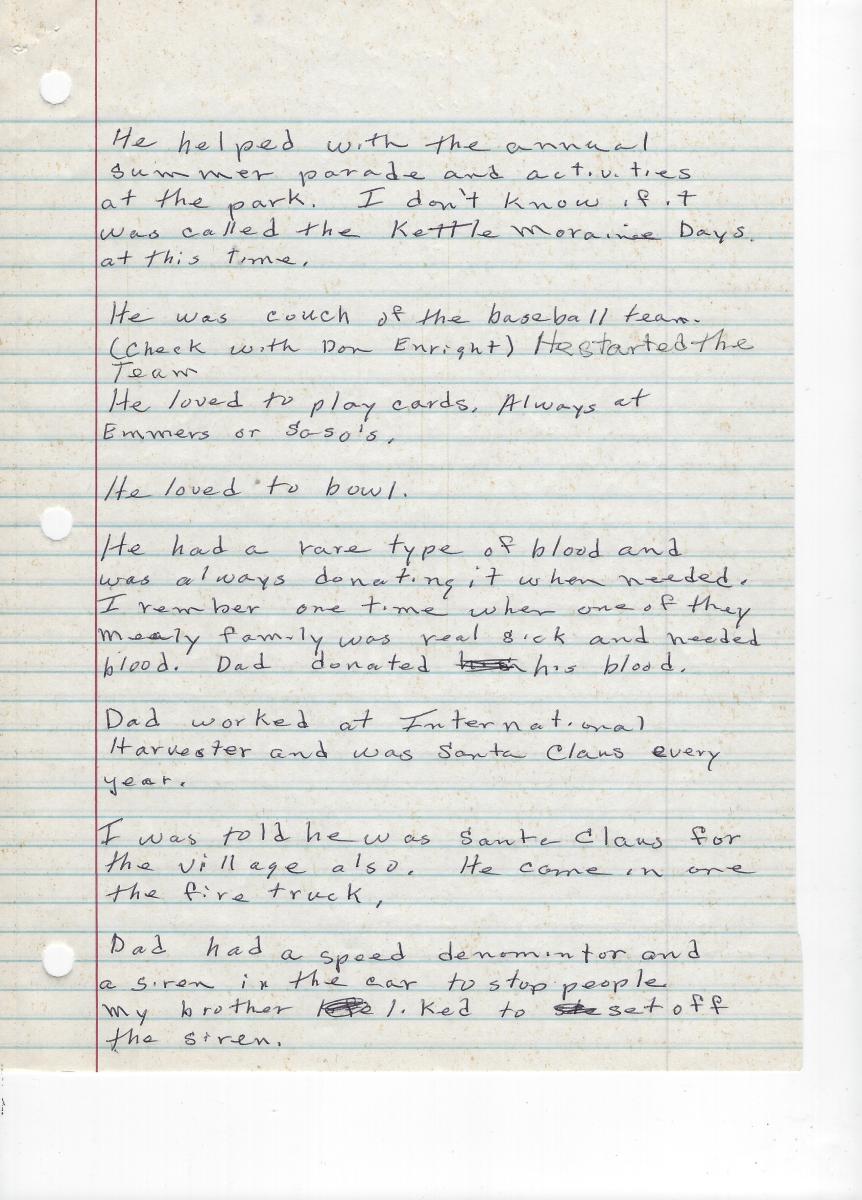 He helped with the annual
summer parade and activities
at the park. I don't know if it
was called the Kettle Moraine Days.
at this time.
He was couch of the baseball team.
(Check with Don Enright) He started the
Team
He loved to play cards. Always at
Emmers or Saso's.
He loved to bowl.
He had a rare type of blood and
was always donating it when needed.
I rember one time when one of they
family was real sick and needed
blood. Dad donated his blood.
Dad worked at International
Harvester and was Santa Claus every
year.
I was told he was Santa Claus for
the village also. He come in one
the fire truck,
Dad had a speed denomintor and
a siren in the car to stop people
my brother liked to set off
the siren.